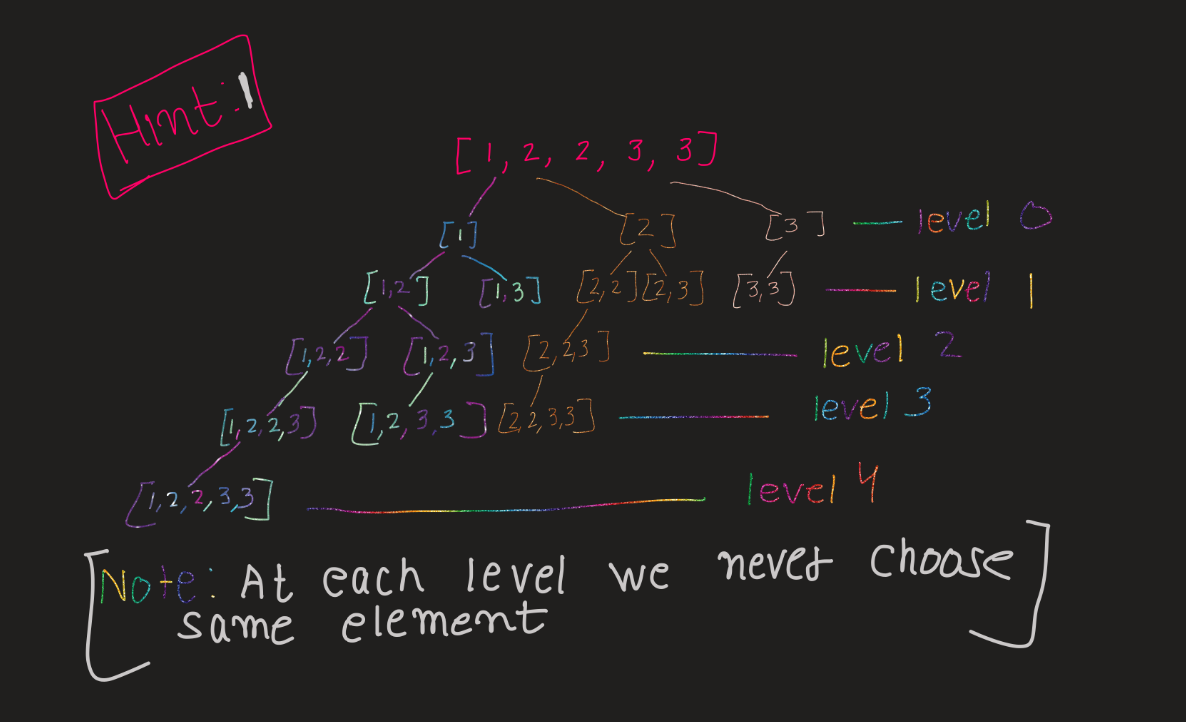 Hint:1
[1, 2, 2, 3, 3]
[1] [2] [3] level 0
[1,2] [1,3] [2,2] [2,3] [3,3] level 1
[1,2,2] [1,2,3] [2,2,3] level 2
[1,2,2,3] [1,2,3,3] [2,2,3,3] level 3
[1,2,2,3,3] level 4
[Note: At each level we never choose
same element]